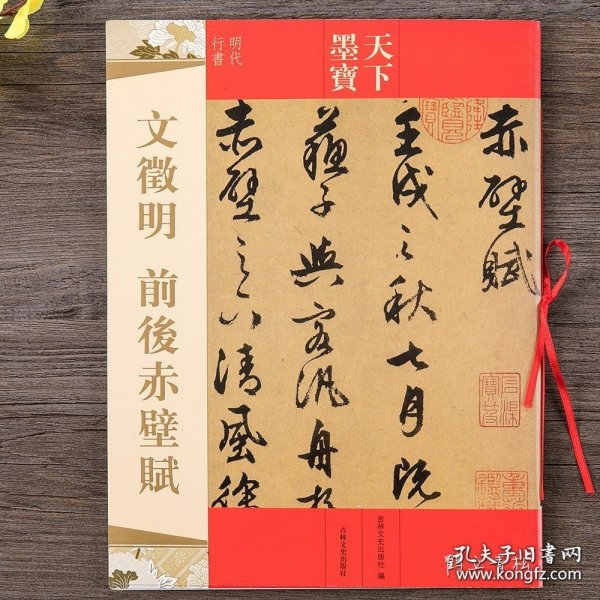 天下
墨寶
明代
行書
文徵明 前後赤壁賦
赤壁賦
壬戌之秋七月既
蘇子與客汎舟於
赤壁之下清風徐
吉林文史出版社 編
吉林文史出版社
孔夫子旧书网
www.kongfz.com